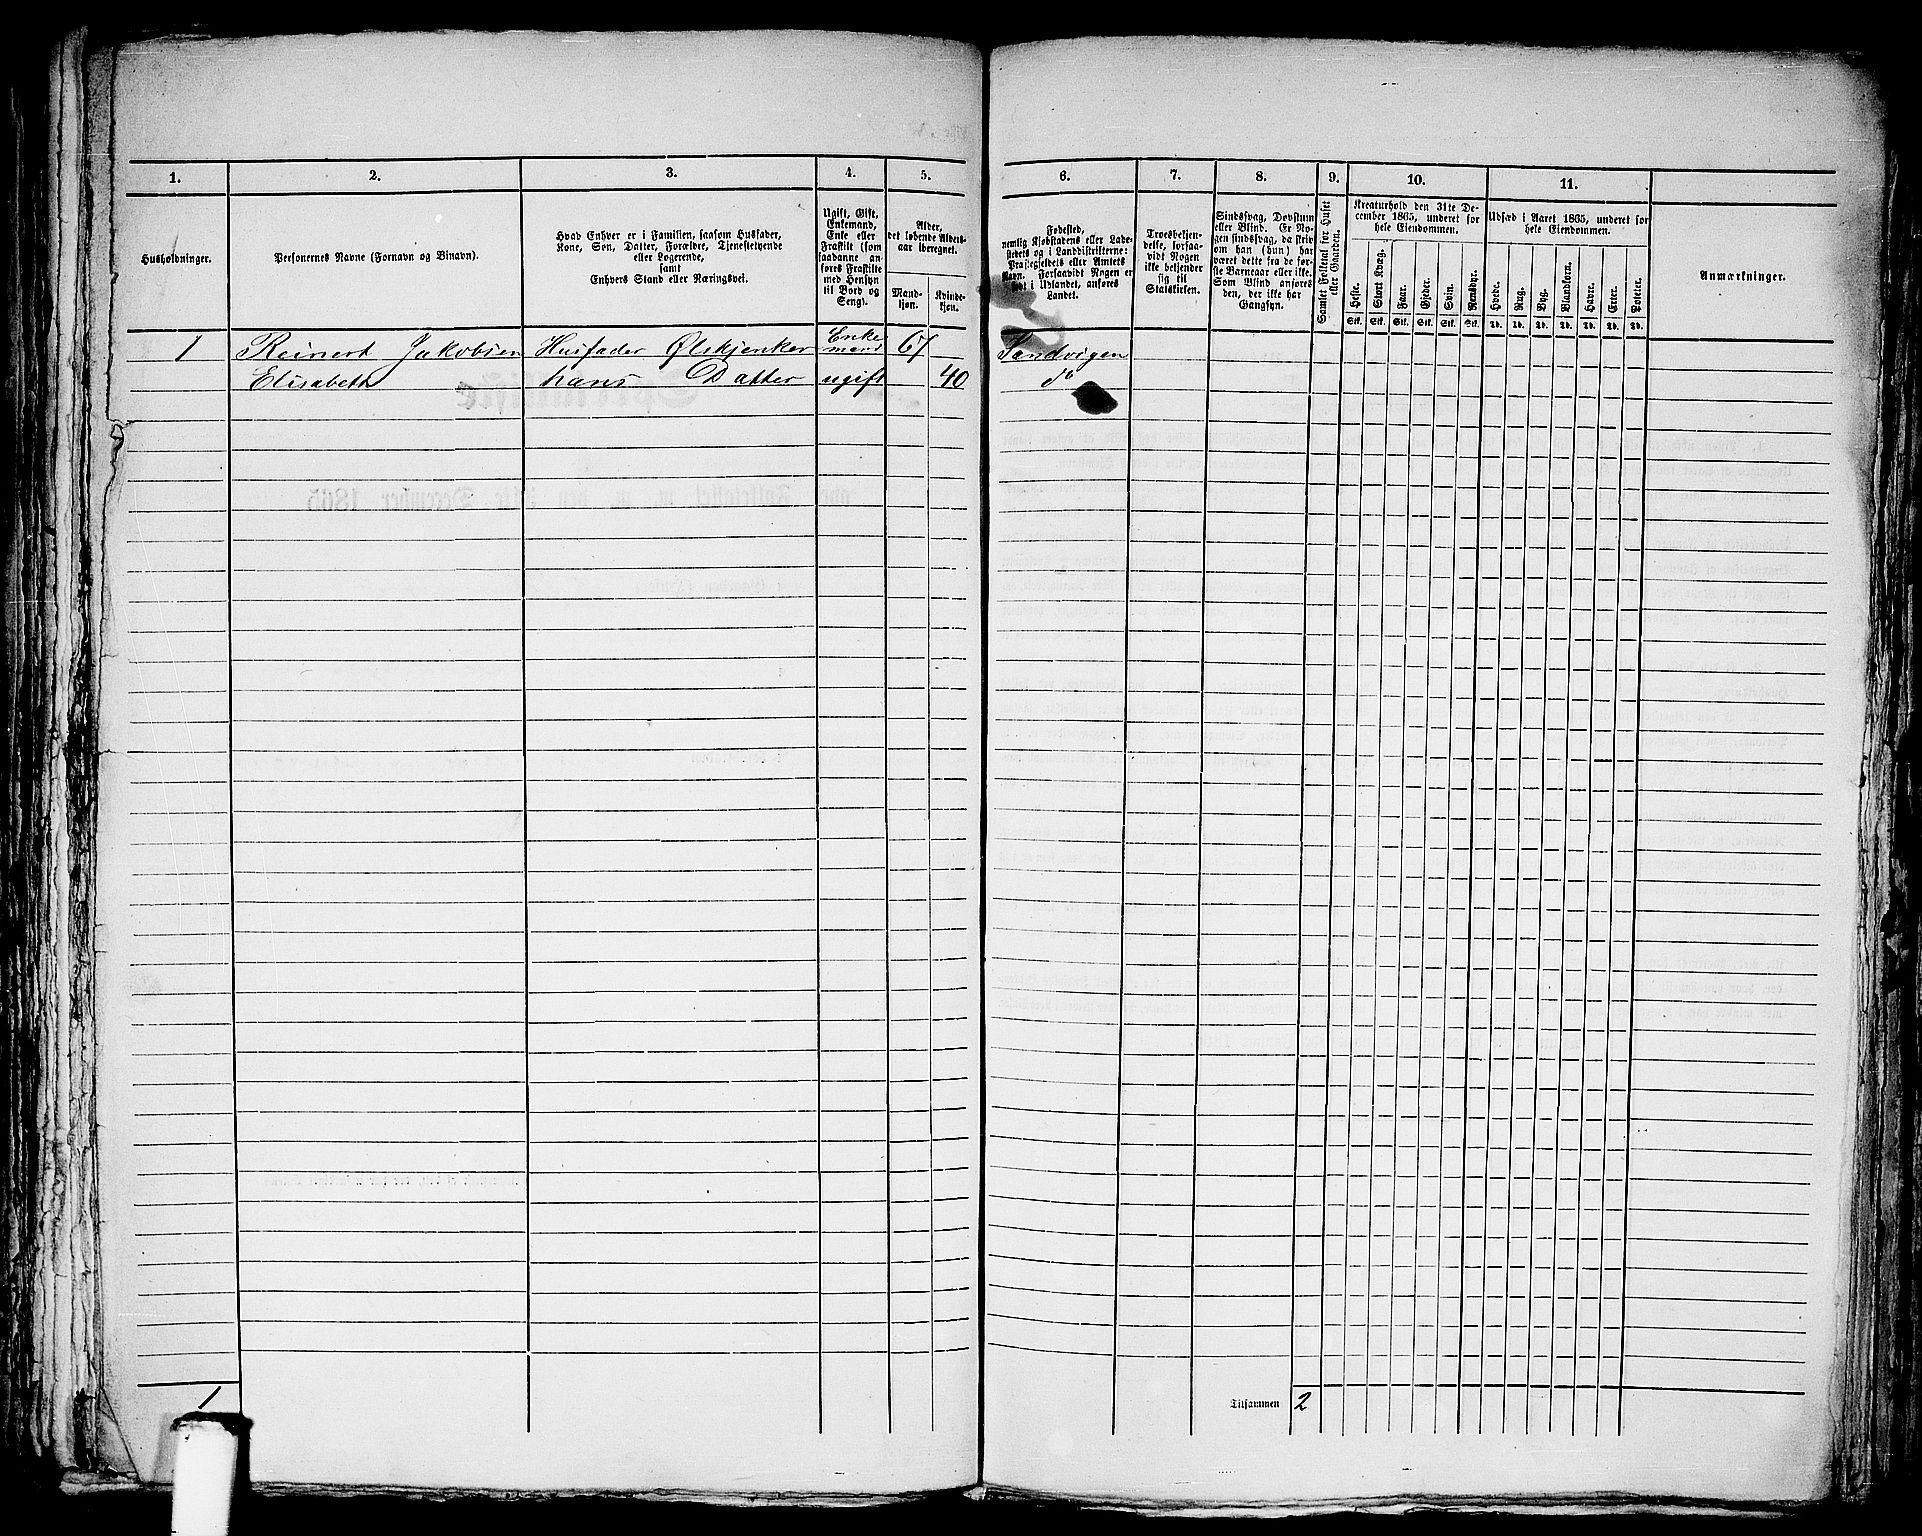 1.
2.
3.
4.
5.
6.
7.
8.
9.
10.
11.
Husholdninger.
Personernes Navne (Fornavn og Binavn).
Hvad Enhver er i Familien, saasom Husfader,
Kone, Søn, Datter, Forældre, Tjenestetyende
eller Logerende,
samt
Enhvers Stand eller Næringsvei.
Ugift, Gift,
Enkemand,
Enke eller
Fraskilt (som
saadanne an-
føres Fraskilte
med Hensyn
til Bord og
Seng).
Alder,
det løbende Alders-
aar iberegnet.
Mand-
kjøn.
Kvinde-
kjøn.
Fødested,
nemlig Kjøbstadens eller Lade-
stedets og i Landdistrikterne:
Præstegjeldets eller Amtets
Navn. Forsaavidt Nogen er
født i Udlandet, anføres
Landet.
Troesbekjen-
delse, forsaa-
vidt Nogen
ikke bekjender
sig til
Statskirken.
Sindssvag, Døvstum
eller Blind. Er No-
gen sindssvag, da skriv
om han (hun) har
været dette fra de før-
ste Barneaar eller ikke.
Som Blind anføres
den, der ikke har
Gangsyn.
Samlet Folketal for Huset
eller Gaarden.
Kreaturhold den 31te De-
cember 1865, underet for
hele Eiendommen.
Heste.
Stort Kvæg.
Faar.
Gjeder.
Svin.
Rensdyr.
Stk. Stk. Stk. Stk. Stk. Stk.
Udsæd i Aaret 1865, underet for
hele Eiendommen.
Hvede.
Rug.
Byg.
Blandkorn.
Havre.
Erter.
Poteter.
Td. Td. Td. Td. Td. Td. Td.
Anmærkninger.
1 Reinert Jakobsen Husfader Ølskjenker Enke mand 67 Sandvigen
Elisabeth hans Datter ugift 40 do
1 Tilsammen 2